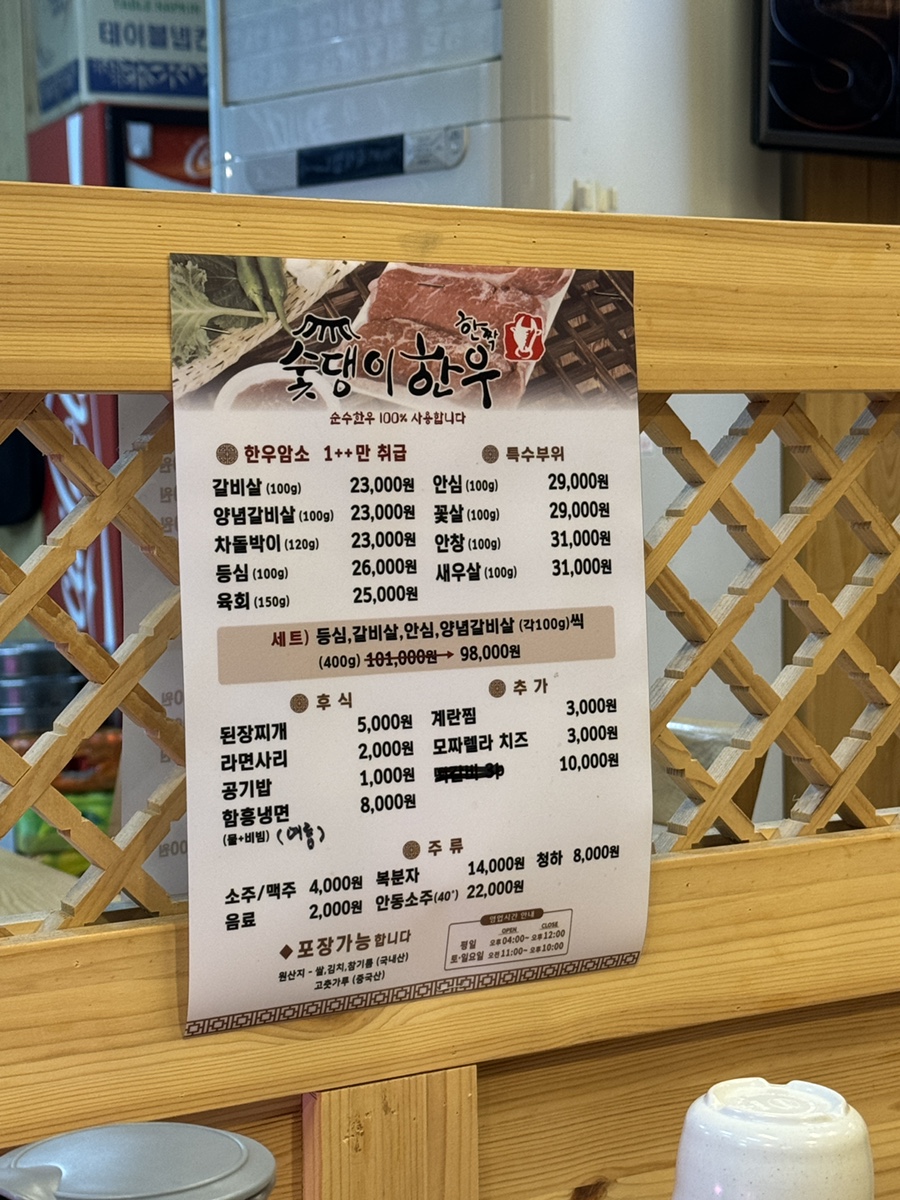 TABLE NAPKIN
테이블냅킨
숯댕이한우
한짝
순수한우 100% 사용합니다
한우암소 1++만 취급
갈비살 (100g) 23,000원
양념갈비살 (100g) 23,000원
차돌박이 (120g) 23,000원
등심 (100g) 26,000원
육회 (150g) 25,000원
특수부위
안심 (100g) 29,000원
꽃살 (100g) 29,000원
안창 (100g) 31,000원
새우살 (100g) 31,000원
세트) 등심,갈비살,안심,양념갈비살 (각100g)씩
(400g) 101,000원→ 98,000원
후식
된장찌개 5,000원
라면사리 2,000원
공기밥 1,000원
함흥냉면 8,000원
(물+비빔)
추가
계란찜 3,000원
모짜렐라 치즈 3,000원
10,000원
주류
소주/맥주 4,000원 복분자 14,000원 청하 8,000원
음료 2,000원 안동소주(40˚) 22,000원
◆포장가능합니다
원산지 - 쌀,김치,참기름 (국내산)
고춧가루 (중국산)
영업시간 안내
OPEN CLOSE
평일 오후 04:00~ 오후 12:00
토·일요일 오전 11:00~ 오후 10:00